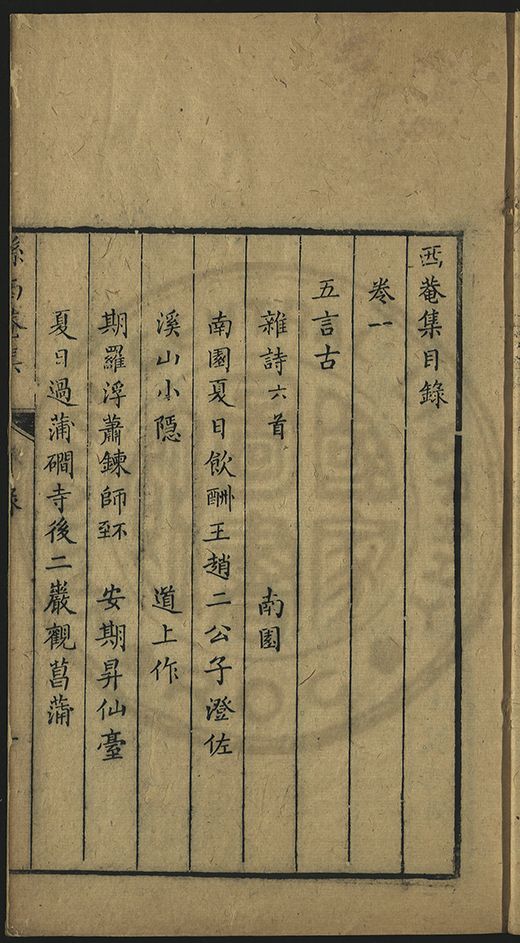 西菴集目錄
卷一
五言古
雜詩六首　南園
南園夏日飲酬王趙二公子澄佐
溪山小隱　道上作
期羅浮蕭鍊師不至　安期昇仙臺
夏日過蒲磵寺後二巖觀菖蒲
西菴集